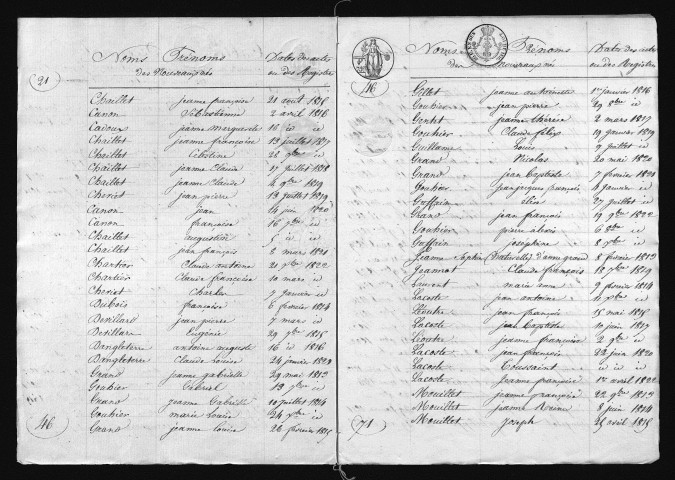 Noms Prénoms Dates des actes
des Nouveaux nés ou des Registres
21
Chaillet jeanne françoise 21 août 1815
Canon Sébastienne 2 avril 1816
Cadour jeanne marguerite 16 id id
Chaillet jeanne françoise 13 juillet 1817
Chaillet Célestine 28 id
Chaillet jeanne Claudine 27 juillet 1818
Chaillet jeanne Claude 4 9bre 1819
Cheriet jean pierre 13 juillet 1819
Canon jean 4 juin 1820
Canon françoise 16 id
Chaillet augustin 5 id id
Chaillet jean françois 8 mars 1821
Chartier Claude antoine 21 1822
Chartier Claude françoise 10 mars id
Cheriet Charles 9 janvier id
Dubois françoise 6 février 1814
Devillard jean pierre 7 mars id
Devillard Eugénie 29 1815
Dangleterre antoine auguste 16 id 1816
Dangleterre Claude Louise 24 janvier 1823
Grand jeanne gabrielle 29 mai 1813
Goubier Gabriel 13 id
Grand jeanne Gabrielle 10 juillet 1814
Goubier marie Louise 24 id
Grand jeanne Louise 26 février 1815
46
Noms Prénoms Dates des actes
des Nouveaux nés ou des Registres
46
Gillet jeanne antoinette 1er janvier 1816
Goubier jean pierre 29 8bre id
Gentet jeanne thérèse 2 mars 1817
Goubier Claude felix 19 janvier 1819
Guillame Louis 9 juillet id
Grand Nicolas 20 mai 1820
Grand jean Baptiste 7 février 1821
Goubier jean jacques françois 4 janvier id
Goffrin élise 27 juillet id
Grand jean françois 19 9bre 1822
Goubier pierre alexis 6 8bre id
Goffrin joséphine 8 id
Jeanne Sophie (Naturelle) 8 février 1813
Jeannot Claude françois 18 1819
Laurent marie anne 9 février 1814
Lacoste jean antoine 4 id
Lioutre 15 mai 1815
Lacoste jean Baptiste 10 juin 1817
Lioutre jeanne françoise 2 id
Lacoste jean françois 22 juin 1820
Lacoste Toussaint id id
Lacoste jeanne françoise 1er avril 1822
Mouillet jeanne françoise 22 9bre 1813
Mouillet jeanne Reine 8 juin 1814
Mouillet joseph 25 avril 1815
71